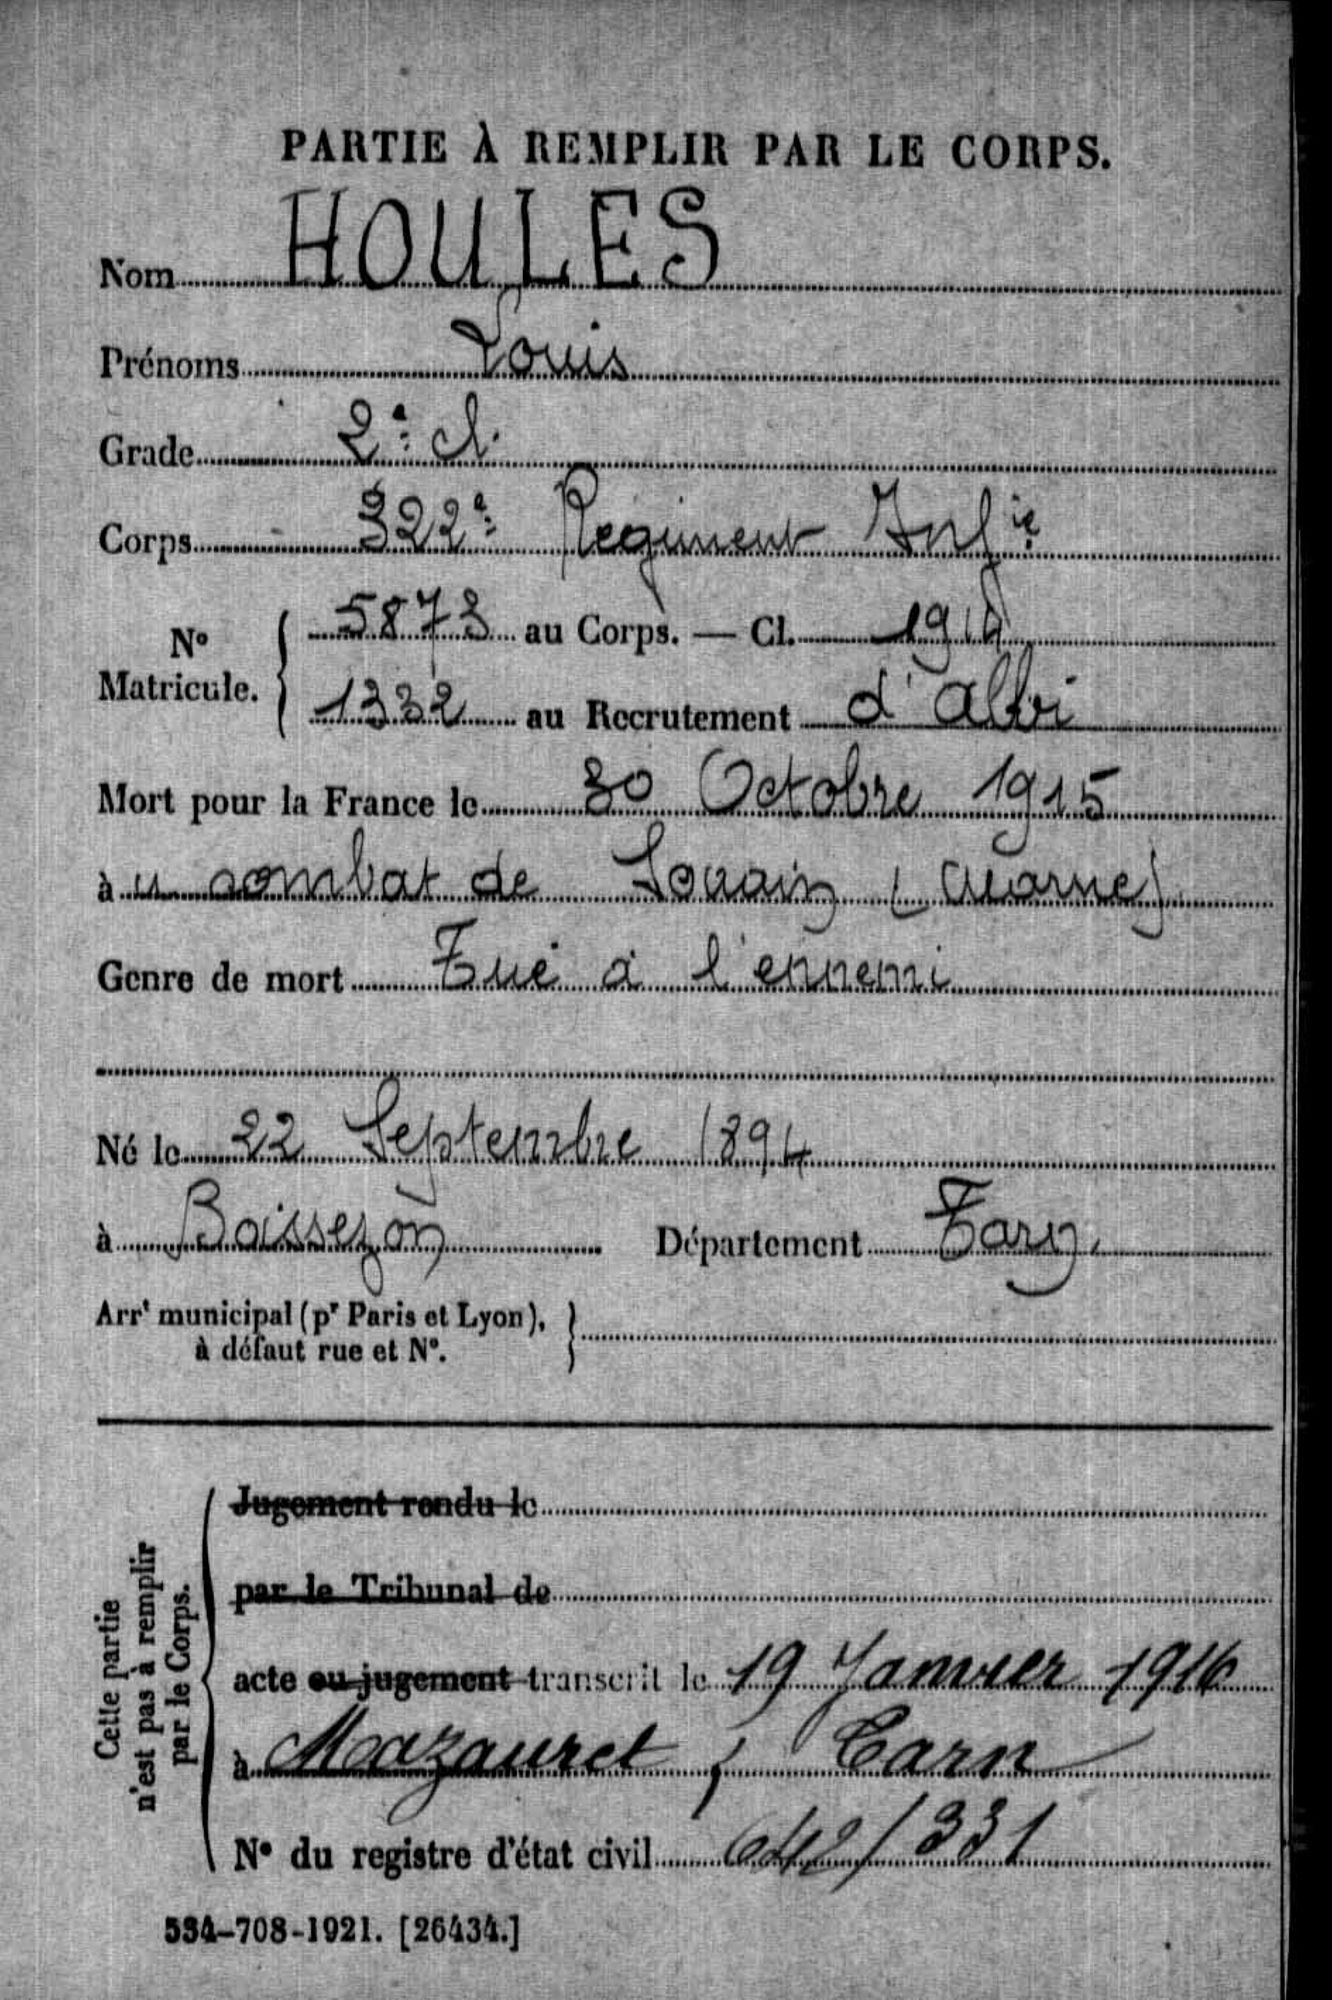 PARTIE À REMPLIR PAR LE CORPS.
Nom HOULES
Prénoms Louis
Grade 2e cl.
Corps 322e Regiment Infie
N° Matricule. 5873 au Corps. — Cl. 1914
1332 au Recrutement d'Albi
Mort pour la France le 30 Octobre 1915
à u combat de Souain (Marne)
Genre de mort Tué à l'ennemi
Né le 22 Septembre 1894
à Boissezon Département Tarn.
Arrt municipal (pr Paris et Lyon),
à défaut rue et N°.
Cette partie
n'est pas à remplir
par le Corps.
Jugement rendu le
par le Tribunal de
acte ou jugement transcrit le 19 Janvier 1916
à Mazamet, Tarn
N° du registre d'état civil 642/331
534-708-1921. [26434.]